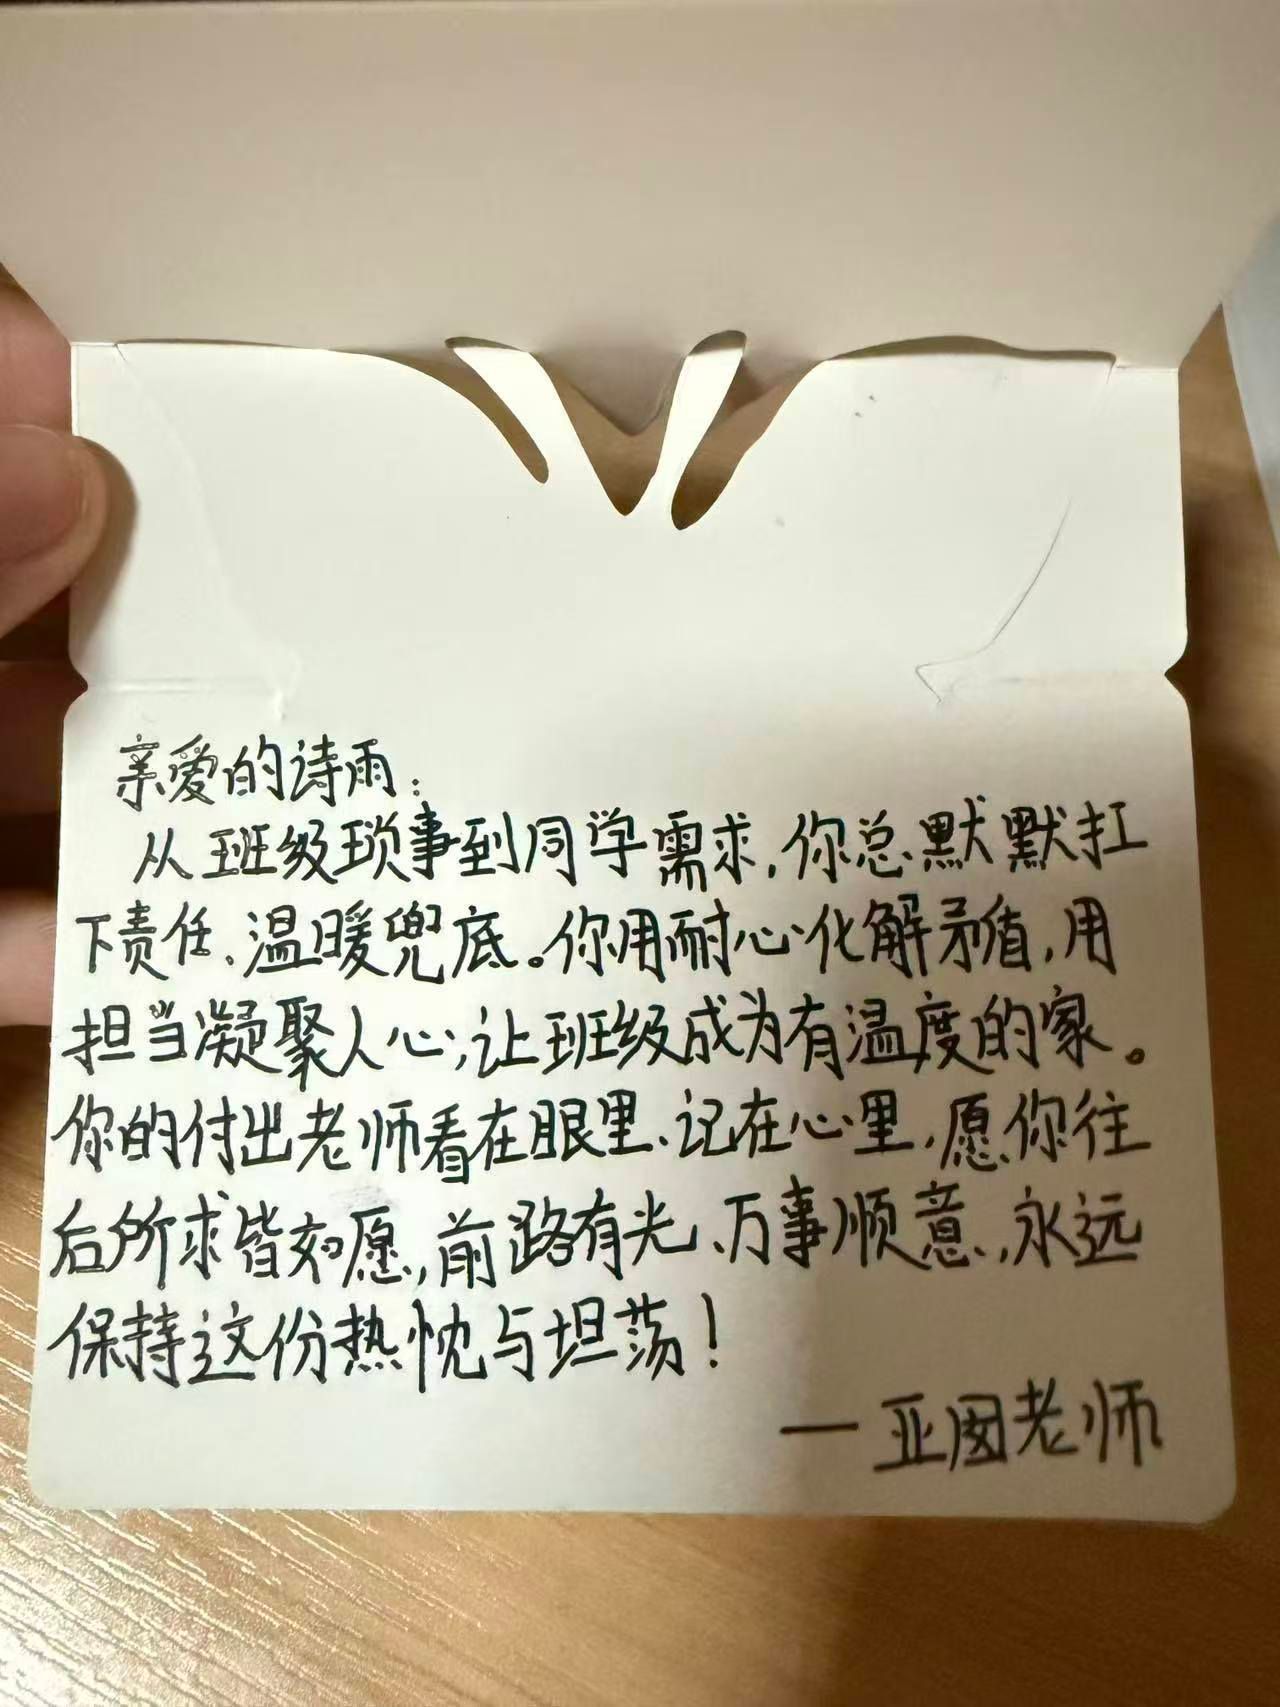 亲爱的诗雨：
从班级琐事到同学需求，你总默默扛
下责任、温暖兜底。你用耐心化解矛盾，用
担当凝聚人心；让班级成为有温度的家。
你的付出老师看在眼里、记在心里，愿你往
后所求皆如愿，前路有光、万事顺意，永远
保持这份热忱与坦荡！
— 亚囡老师